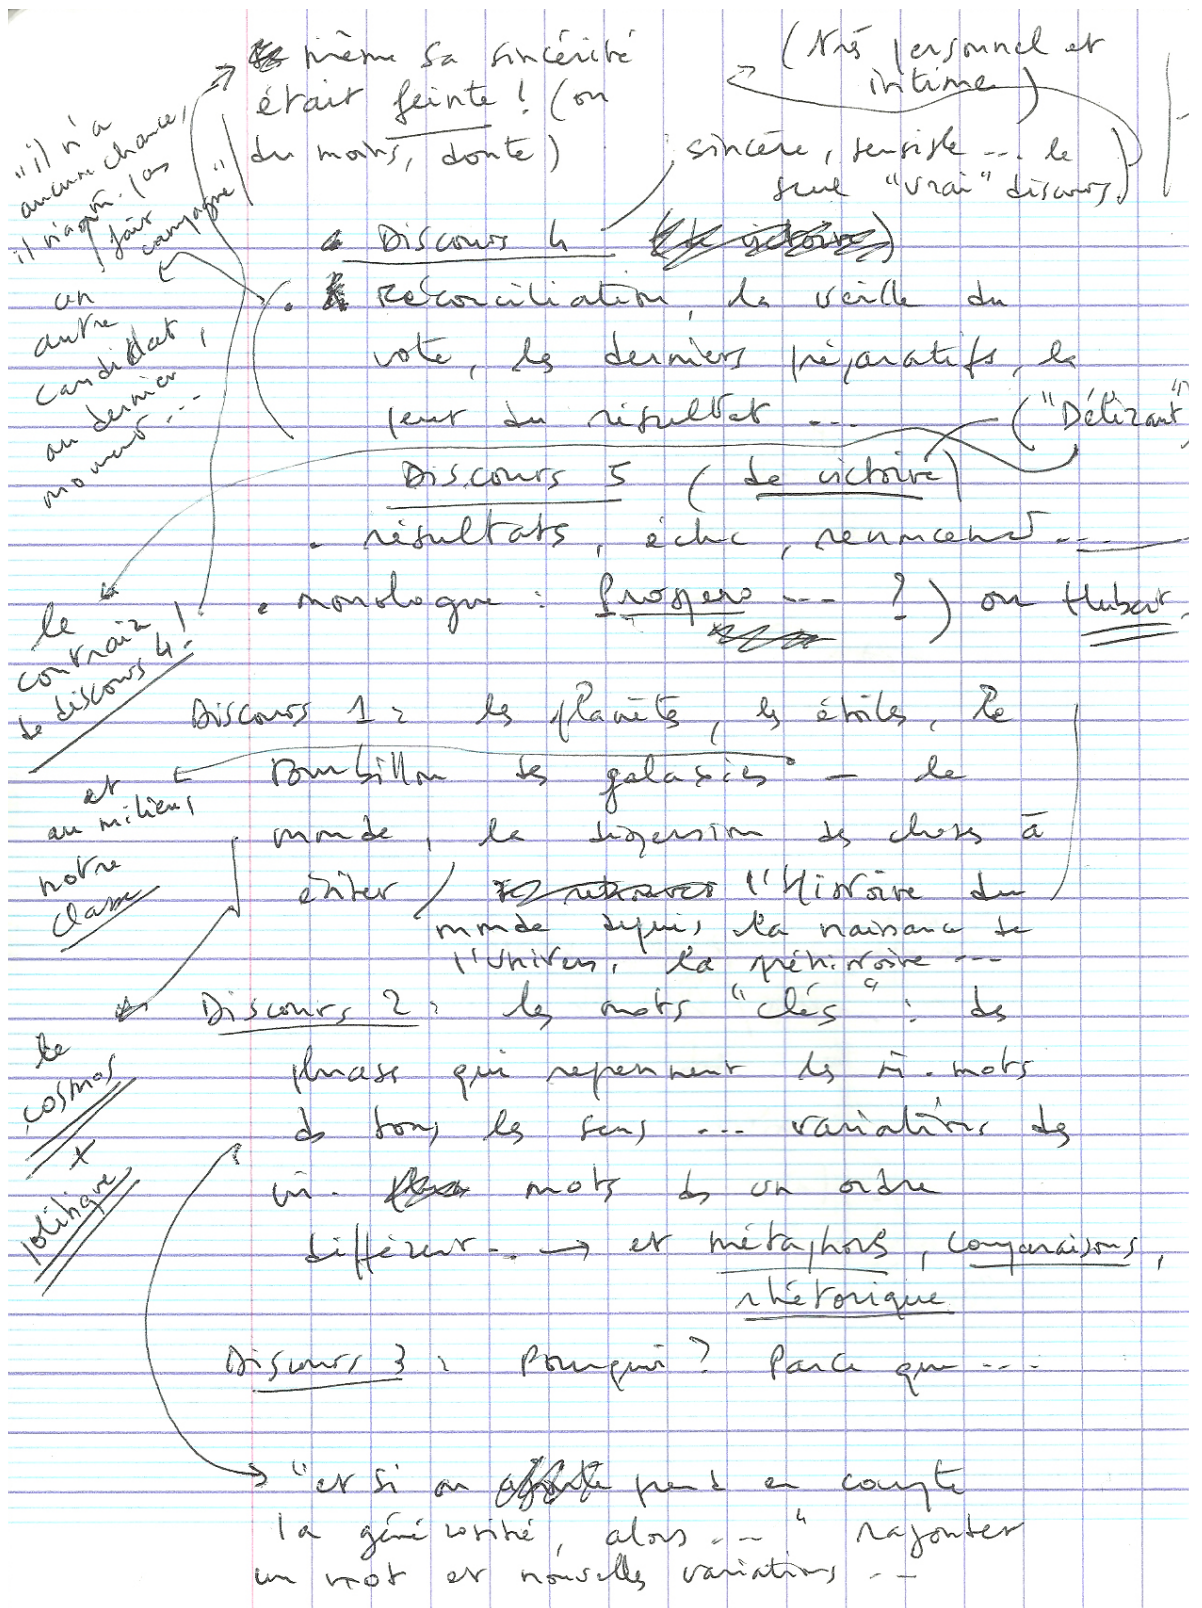 même sa sincérité
était feinte ! (ou
du moins, doute)
(très personnel et
intime)
sincère, sensible ... le
seul "vrai" discours)
"il n'a
aucune chance,
il n'a pas
fait
campagne"
un
autre
candidat,
au dernier
moment ...
Discours 4
Réconciliation, la veille du
vote, les derniers préparatifs, la
peur du résultat ...
("Délirant")
Discours 5 (de victoire)
résultats, échec, renoncement ...
monologue : Prospero ... ?) ou Hubert
le
contraire
de discours 4 !
Discours 1 : les planètes, les étoiles, le
tourbillon des galaxies - le
monde, la dispersion des choses à
éviter / l'Histoire du
monde depuis la naissance de
l'Univers, la préhistoire ...
et
au milieu,
notre
classe
Discours 2 : les mots "clés" : des
phrases qui reprennent les m. mots
ds tous les sens ... variations des
m. mots ds un ordre
différent ... → et métaphores, comparaisons,
rhétorique
le
cosmos
+
politique
Discours 3 : Pourquoi ? Parce que ...
"et si on prend en compte
la générosité, alors ..." rajouter
un mot et nouvelles variations ...